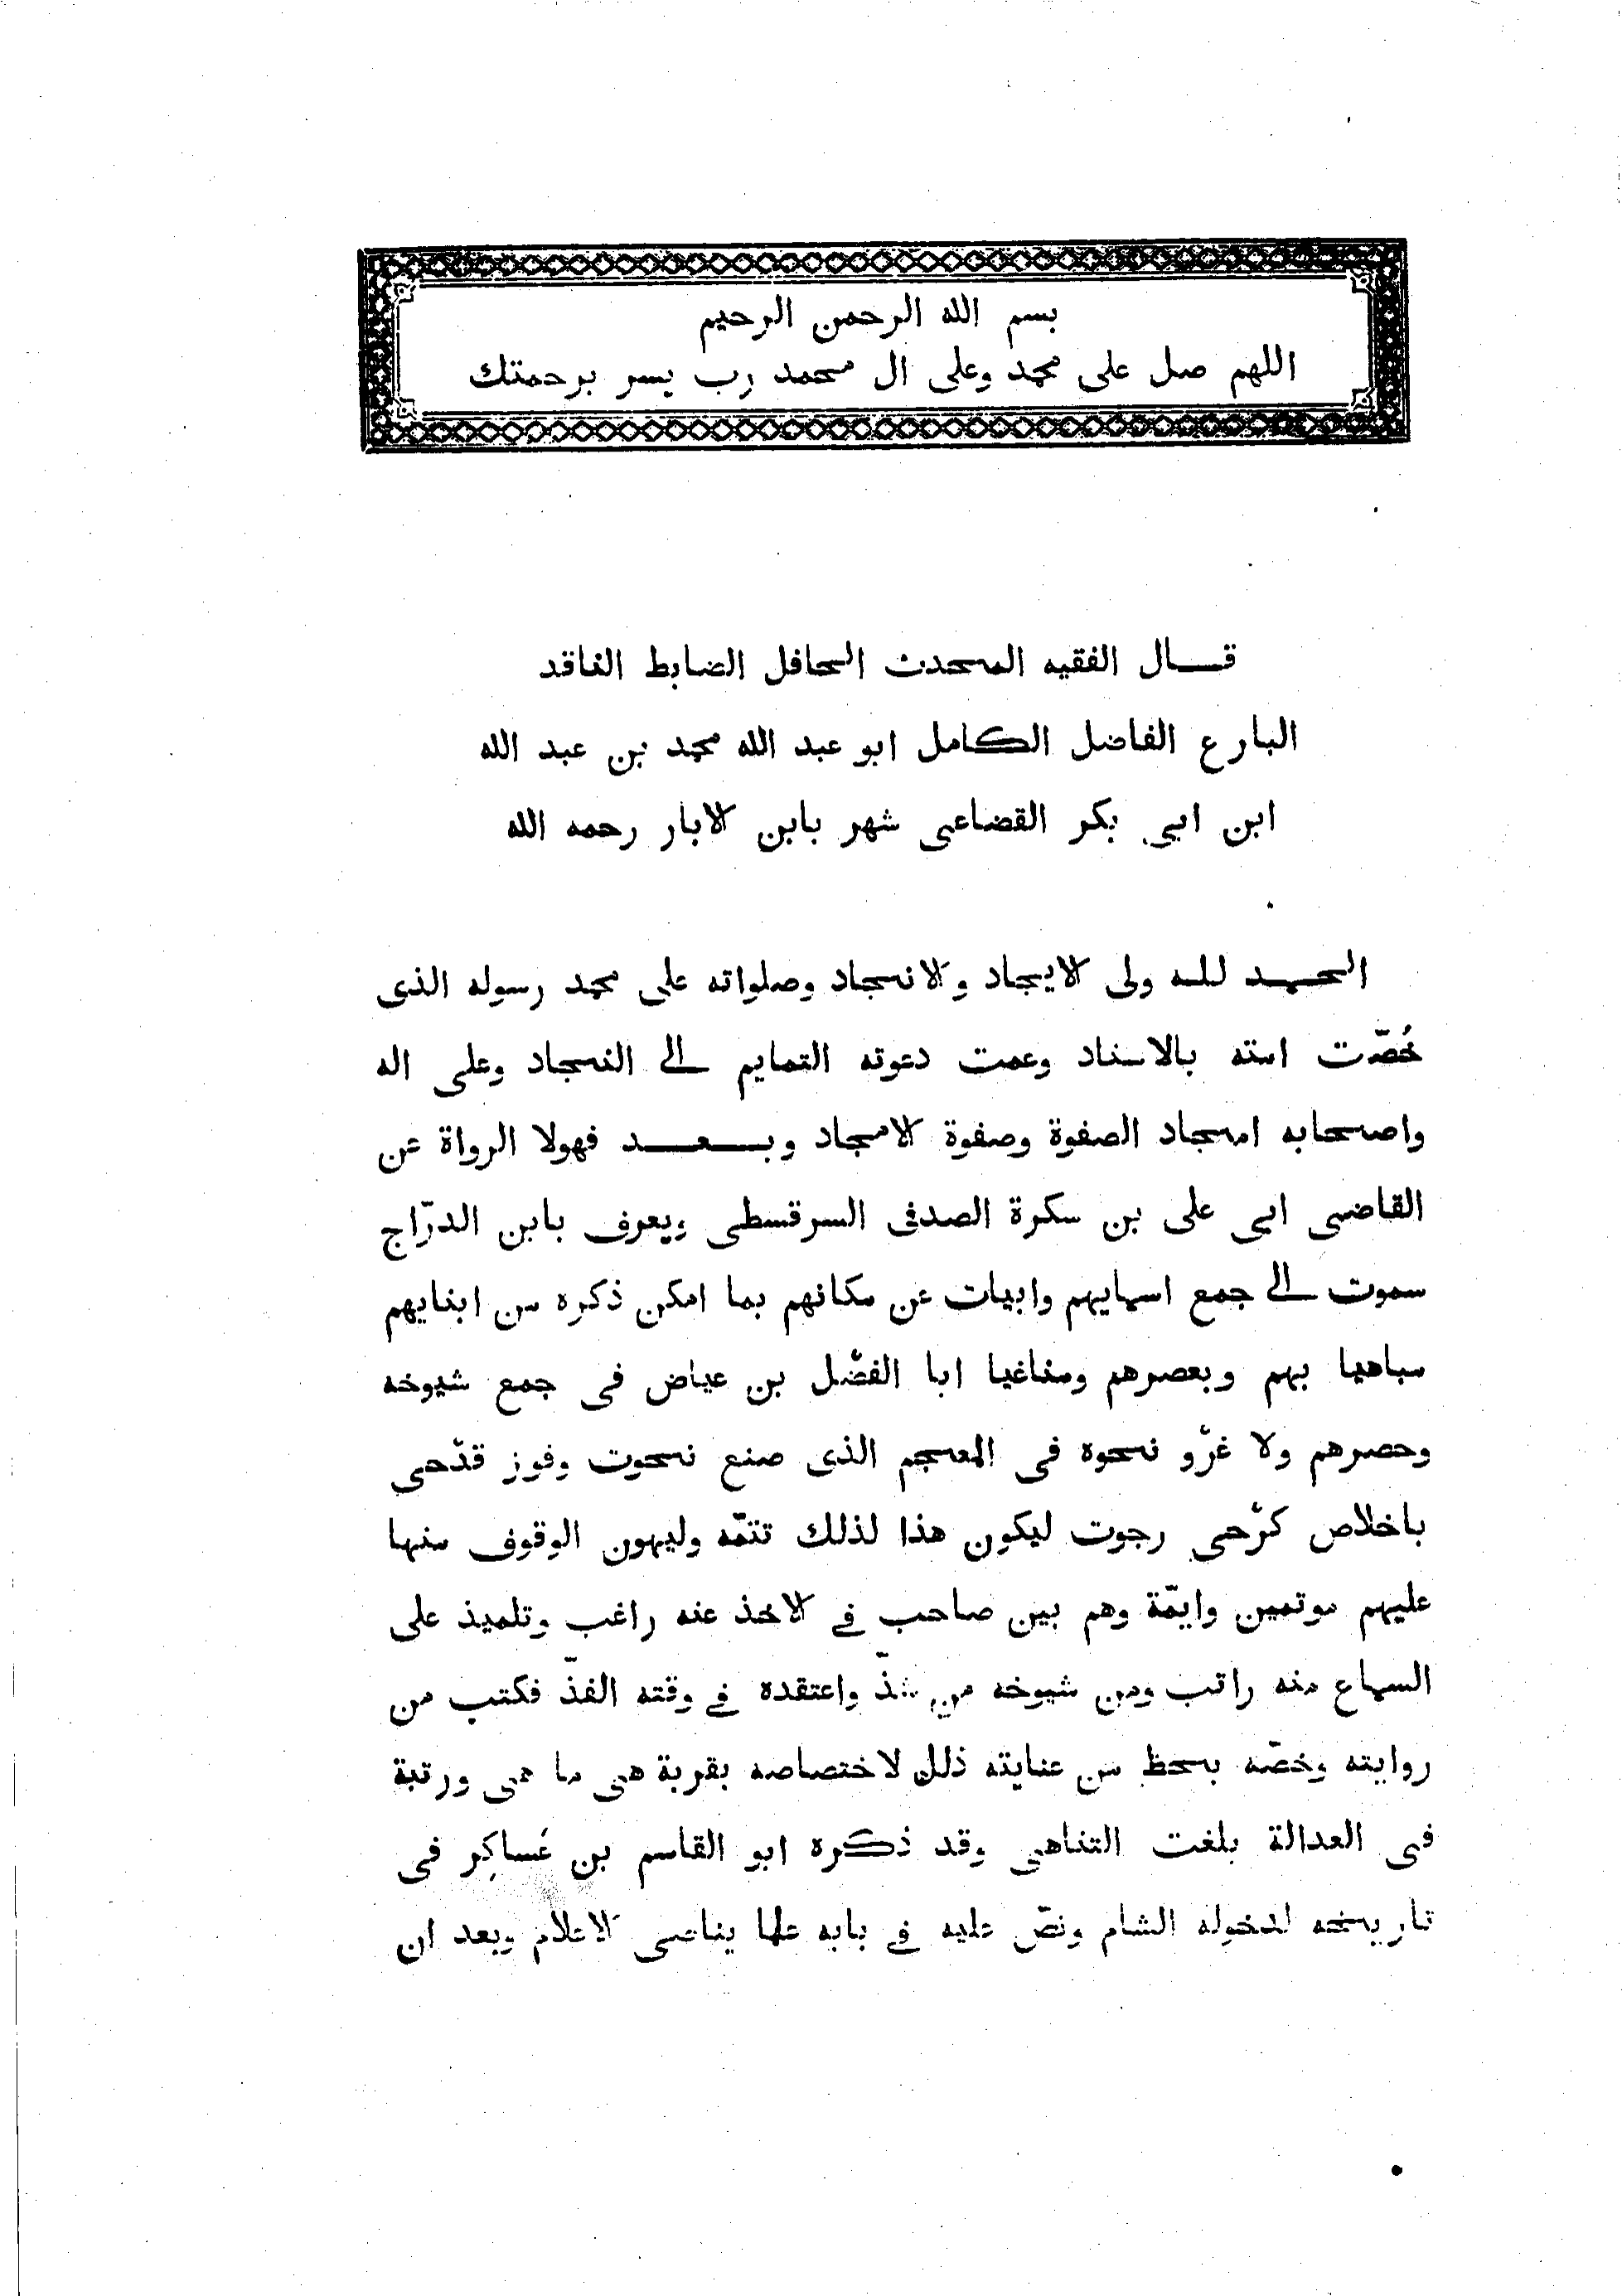 بسم الله الرحمن الرحيم
اللهم صل على محمد وعلى ال محمد رب يسر برحمتك
قـــال الفقيه المحدث الحافل الضابط الناقد
البارع الفاضل الكامل ابو عبد الله محمد بن عبد الله
ابن ابي بكر القضاعى شهر بابن الابار رحمه الله
الحمـد للـه ولى الايجاد والانجاد وصلواته على محمد رسوله الذى
خُصّت امته بالاسناد وعمت دعوته التمايم الى النجاد وعلى اله
واصحابه امجاد الصفوة وصفوة الامجاد وبـــعـــد فهولا الرواة عن
القاضى ابى على بن سكرة الصدفى السرقسطى ويعرف بابن الدرّاج
سموت الى جمع اسمايهم وابيات عن مكانهم بما امكن ذكره من ابنايهم
مباهيا بهم وبعصرهم ومناغيا ابا الفضْل بن عياض فى جمع شيوخه
وحصرهم ولا غرْو نحوه فى المعجم الذى صنع نحوت وفوز قدْحى
باخلاص كدْحى رجوت ليكون هذا لذلك تتمّه وليهون الوقوف منها
عليهم موتمين وايمّة وهم بين صاحب فى الاخذ عنه راغب وتلميذ على
السماع منه راتب ومن شيوخه من شذّ واعتقده فى وقته الفذّ فكتب من
روايته وخصّه بحظ من عنايته ذلك لاختصاصه بقربة هى ما هى ورتبة
فى العدالة بلغت التناهى وقد ذكره ابو القاسم بن عَساكِر فى
تاريخه لدخوله الشام ونصّ عليه فى بابه علما يناصى الاعلام وبعد ان